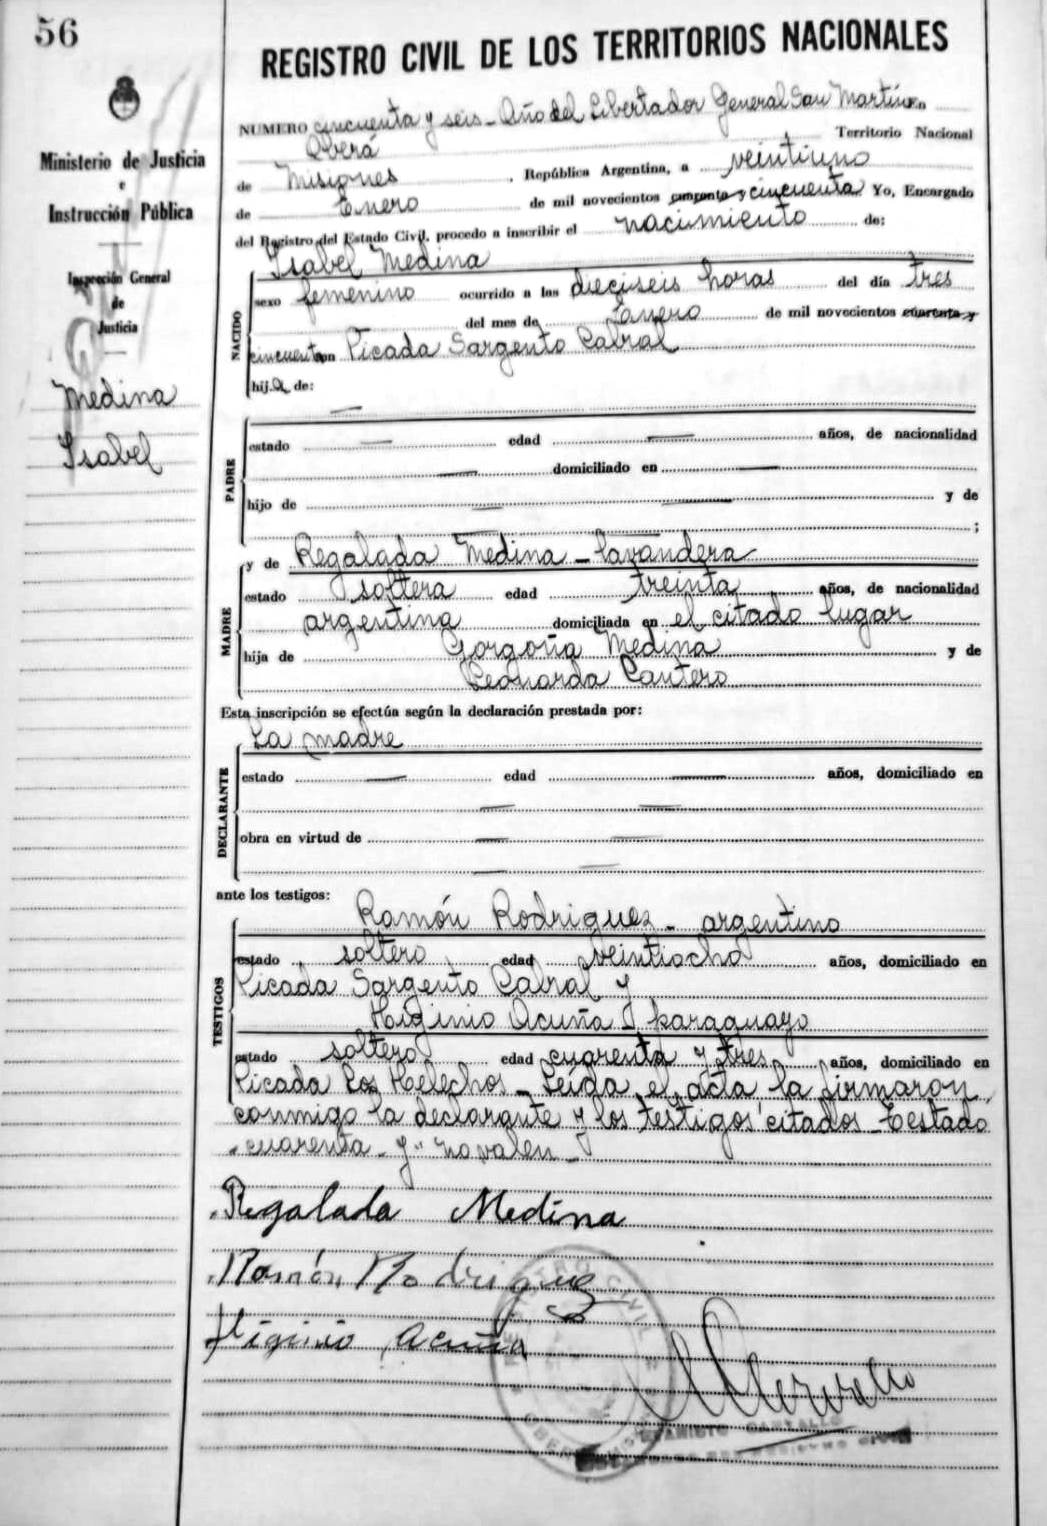 56
REGISTRO CIVIL DE LOS TERRITORIOS NACIONALES
Ministerio de Justicia
e
Instrucción Pública
Inspección General
de
Justicia
Medina
Isabel
NUMERO cincuenta y seis - Año del Libertador General San Martín En
Oberá Territorio Nacional
de Misiones, República Argentina, a veintiuno
de Enero de mil novecientos cuarenta y cincuenta Yo, Encargado
del Registro del Estado Civil, procedo a inscribir el nacimiento de:
NACIDO
Isabel Medina
sexo femenino ocurrido a las dieciseis horas del día tres
del mes de Enero de mil novecientos cuarenta y
cincuenta en Picada Sargento Cabral
hija de:
PADRE
estado — edad — años, de nacionalidad
— domiciliado en —
hijo de — — y de
;
MADRE
y de Regalada Medina - lavandera
estado soltera edad treinta años, de nacionalidad
argentina domiciliada en el citado lugar
hija de Medina y de
Leonarda Cantero
Esta inscripción se efectúa según la declaración prestada por:
DECLARANTE
La madre
estado — edad — años, domiciliado en
— —
obra en virtud de — —
— —
ante los testigos:
TESTIGOS
Ramón Rodriguez - argentino
estado soltero edad veintiocho años, domiciliado en
Picada Sargento Cabral y
Higinio Acuña paraguayo
estado soltero edad cuarenta y tres años, domiciliado en
Picada Los Helechos - Leída el acta la firmaron
conmigo la declarante y los testigos citados - Testado
"cuarenta - y" no valen -
Regalada Medina
Ramón Rodriguez
Higinio Acuña
REGISTRO CIVIL